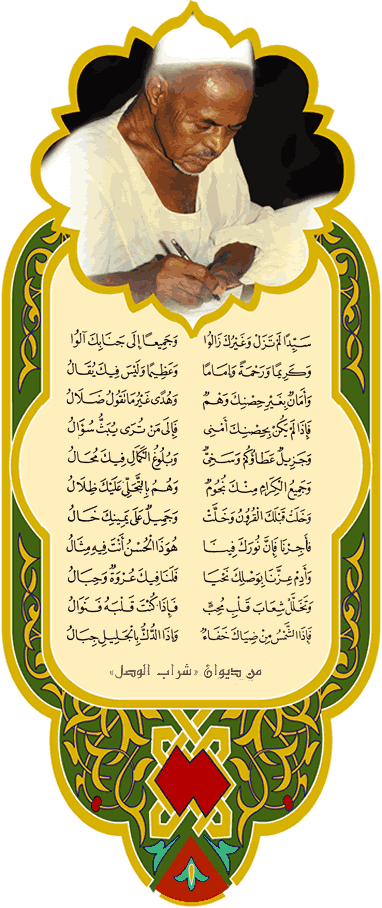 سَيِّدًا لَمْ تَزَلْ وَغَيْرُكَ زَالُوا وَجَمِيعًا إِلَى جَنَابِكَ آلُوا
وَكَرِيمًا وَرَحْمَةً وَإِمَامًا وَعَظِيمًا وَلَيْسَ فِيكَ يُقَالُ
وَأَمَانٌ بِغَيْرِ حِصْنِكَ وَهْمٌ وَهُدًى غَيْرُ مَا تَقُولُ ضَلَالُ
فَإِذَا لَمْ يَكُنْ بِحِصْنِكَ أَمْنِي فَإِلَى مَنْ تُرَى يُبَثُّ سُؤَالُ
وَجَزِيلٌ عَطَاؤُكُمْ وَسَنِيٌّ وَبُلُوغُ الْكَمَالِ فِيكَ مُحَالُ
وَجَمِيعُ الْكِرَامِ مِنْكَ نُجُومٌ وَهُمُ بِالتَّجَلِّي عَلَيْكَ ظِلَالُ
وَخَلَتْ قَبْلَكَ الْقُرُونُ وَخَلَّتْ وَجَمِيلٌ عَلَى يَمِينِكَ خَالُ
فَأَجِرْنَا فَإِنَّ نُورَكَ فِينَا هُوَ ذَا الْحُسْنُ أَنْتَ فِيهِ مِثَالُ
وَأَدِمْ عِزَّنَا بِوَصْلِكَ نَحْيَا فَلَنَا فِيكَ عُرْوَةٌ وَحِبَالُ
وَتَخَلَّلْ شِعَابَ قَلْبِ مُحِبٍّ فَإِذَا كُنْتَ قَلْبَهُ فَنَوَالُ
فَإِذَا الشَّمْسُ مِنْ ضِيَاكَ خَفَاءٌ وَإِذَا الدَّكُّ بِالْجَلِيلِ جِبَالُ
من ديوان «شراب الوصل»